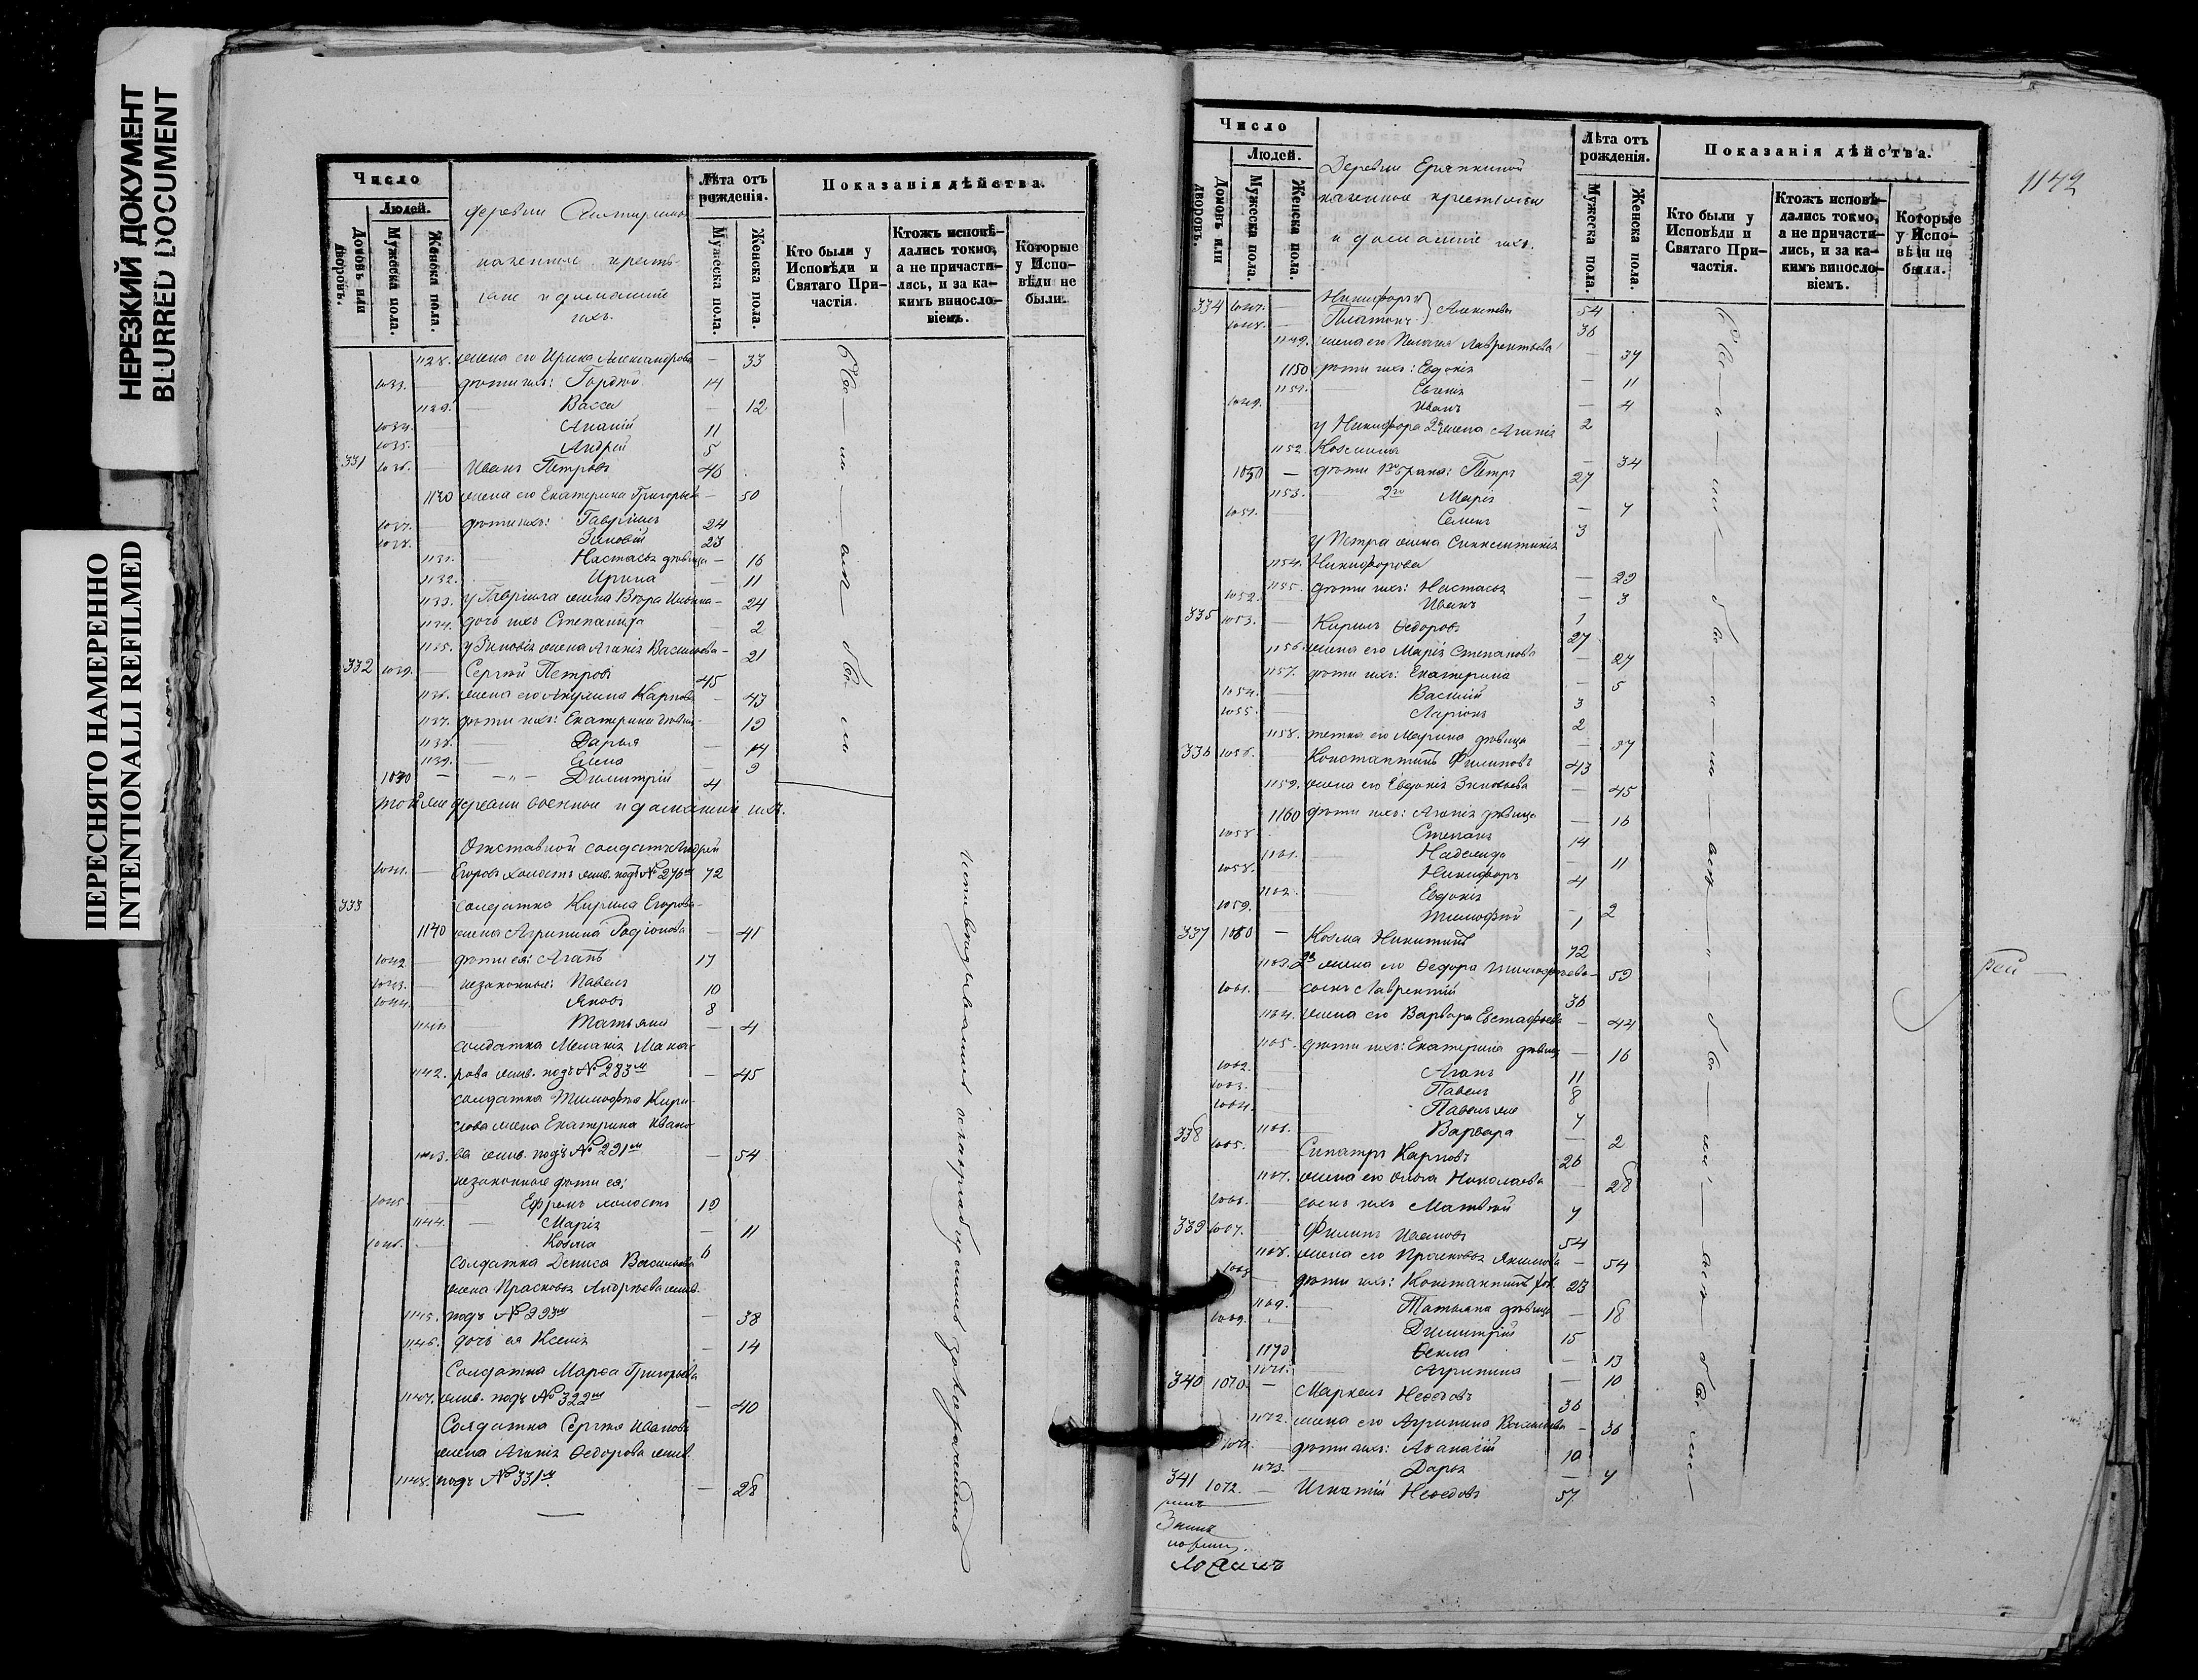 НЕРЕЗКИЙ ДОКУМЕНТ
BLURRED DOCUMENT
ПЕРЕСНЯТО НАМЕРЕННО
INTENTIONALLI REFILMED
Число
Людей.
Домовъ или дворовъ.
Мужеска пола.
Женска пола.
деревни
казенные кресть-
яне и домашніи
ихъ.
Лѣта отъ рожденія.
Мужеска пола.
Женска пола.
Показанія дѣйства.
Кто были у Исповѣди и Святаго При-частія.
Ктожъ исповѣ-дались токмо, а не причасти-лись, и за ка-кимъ винословіемъ.
Которые у Испо-вѣди не были.
1128. жена его Ирина Александрова — 33
1033. — дѣти ихъ: Гордѣй 14
1129. — Васса — 12
1034. Ананій 11
1035. Андрей 5
331 1036. — Иванъ Петровъ 46
1130 жена его Екатерина Григорьева — 50
1037. дѣти ихъ: Гавріилъ 24
1038. Зиновій 23
1131. Настасья дѣвица — 16
1132. Ирина — 11
1133. у Гавріила жена Вѣра Ильина — 24
1134. дочь ихъ Степанида — 2
1135. у Зиновія жена Агапія Васильева — 21
332 1039. — Сергѣй Петровъ 45
1136. жена его Акулина Карпова — 43
1137. дѣти ихъ: Екатерина дѣвица — 19
1138. — Дарья — 14
1139. — Елена — 9
1040 — — „ — Димитрій 4
той же деревни военные и домашніи ихъ.
Отставной солдатъ Андрей
1041. — Егоровъ холостъ жив. подъ № 276мъ 72
333 солдатка Кирила Егорова
1140 жена Агрипина Родіонова — 41
1042 — дѣти ея: Агапъ 17
1043. — незаконныя: Павелъ 10
1044. — Яковъ 8
1141. — Татьяна — 4
солдатка Меланія Мака-
1142. рова жив. подъ № 283мъ — 45
солдатка Тимофѣя Кири-
лова жена Екатерина Ивано-
1143. ва жив. подъ № 291мъ — 54
незаконные дѣти ея:
1045 — Ефремъ холостъ 19
1144. — Марія — 11
1046. — Козма 6
Солдатка Дениса Васильева
жена Прасковья Андреева жив.
1145. подъ № 293мъ — 38
1146. дочь ея Ксенія — 14
Солдатка Марѳа Григорьева
1147. жив. подъ № 322мъ — 40
Солдатка Сергѣя Иванова
жена Агапія Ѳедорова жив.
1148. подъ № 331мъ — 28
1142
Число
Людей.
Домовъ или дворовъ.
Мужеска пола.
Женска пола.
Деревни Еряпкиной
казенные крестьяне
и домашніе ихъ.
Лѣта отъ рожденія.
Мужеска пола.
Женска пола.
Показанія дѣйства.
Кто были у Исповѣди и Святаго При-частія.
Ктожъ исповѣ-дались токмо, а не причасти-лись, и за ка-кимъ винословіемъ.
Которые у Испо-вѣди не были.
334 1047. — Никифоръ } Алексѣевы 54
1048. — Платонъ 36
1149. жена его Пелагея Лаврентьева — 37
1150 дѣти ихъ: Евдокія — 11
1151. Евгенія — 4
1049. — Иванъ 2
у Никифора 2я жена Агапія
1152. Козмина — 34
1050 — дѣти 1го брака: Петръ 27
1153. 2го Марія — 7
1051. Семенъ 3
у Петра жена Синклитикія
1154. Никифорова — 29
1155. дѣти ихъ: Настасья — 3
1052. Иванъ 1
335 1053. — Кирилъ Ѳедоровъ 27
1156. жена его Марія Степанова — 27
1157. дѣти ихъ: Екатерина — 5
1054. — Василій 3
1055. — Ларіонъ 2
1158. тетка его Марина дѣвица — 37
336 1056. Константинъ Филиповъ 43
1159. жена его Евдокія Зиновьева — 45
1160 дѣти ихъ: Агапія дѣвица — 16
1058. Степанъ 14
1161. — Надежда — 11
1058. Никифоръ 4
1162. — Евдокія — 2
1059. — Тимофей 1
337 1060 — Козма Никитинъ 72
1163. 2я жена его Ѳедора Тимофѣева — 59
1061. — сынъ Лаврентій 36
1164. жена его Варвара Евстафьева — 44
1165. дѣти ихъ: Екатерина дѣвица — 16
1062. Агапъ 11
1063. — Павелъ 8
1064. — Павелъ же 7
1166. — Варвара — 2
338 1065. — Сипатръ Карповъ 26
1167. жена его Ольга Николаева — 28
1066. — сынъ ихъ Матвѣй 7
339 1067. — Филипъ Ивановъ 54
1168. жена его Прасковья Якимова — 54
1068 — дѣти ихъ: Константинъ хол. 23
1169. — Татьяна дѣвица — 18
1069. — Димитрій 15
1170 Ѳекла — 13
1171. — Агрипина — 10
340 1070. — Маркелъ Неѳедовъ 36
1172. жена его Агрипина Васильева — 36
1071. — дѣти ихъ: Аѳанасій 10
1173. — Дарья — 7
341 1072. — Игнатій Неѳедовъ 57